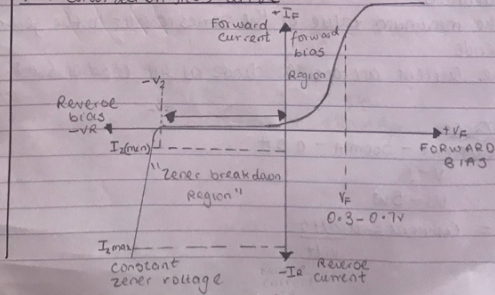 +IF
Forward
current
forward
bias
Region
-Vz
Reverse
bias
-VR
+VF
FORWARD
BIAS
Iz(min)
"Zener breakdown
Region"
VF
0.3-0.7v
Izmax
constant
zener voltage
-IR
Reverse
current